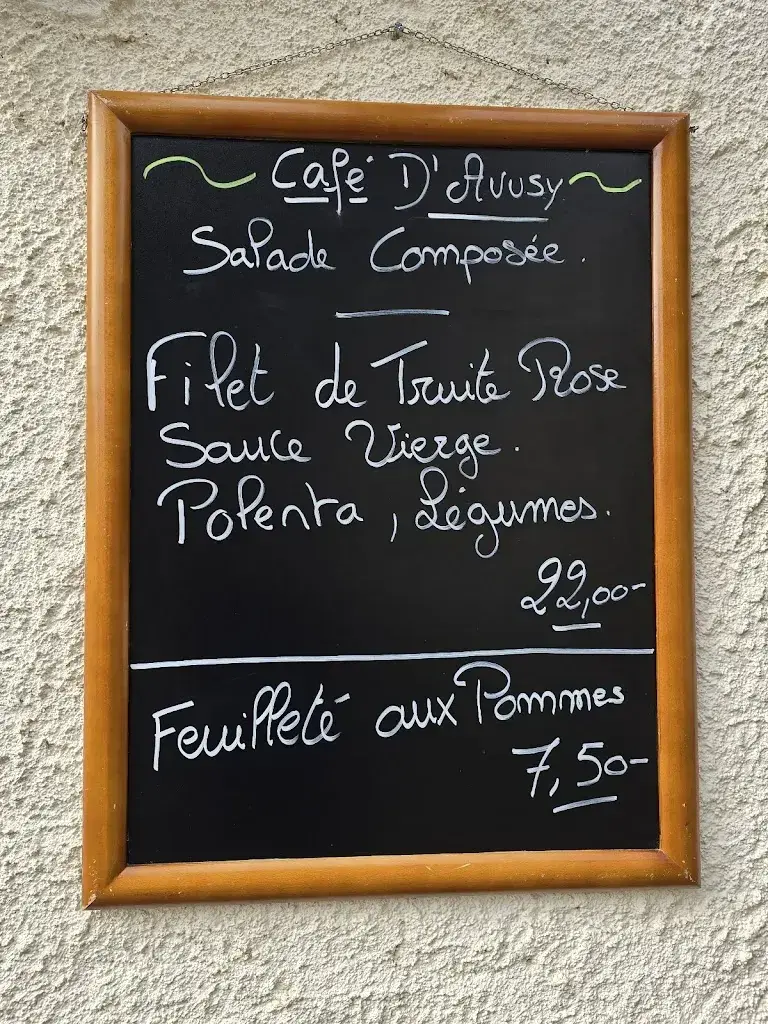 Café D'Avusy
Salade Composée.
Filet de Truite Rose
Sauce Vierge.
Polenta, Légumes.
22,00-
Feuilleté aux Pommes
7,50-